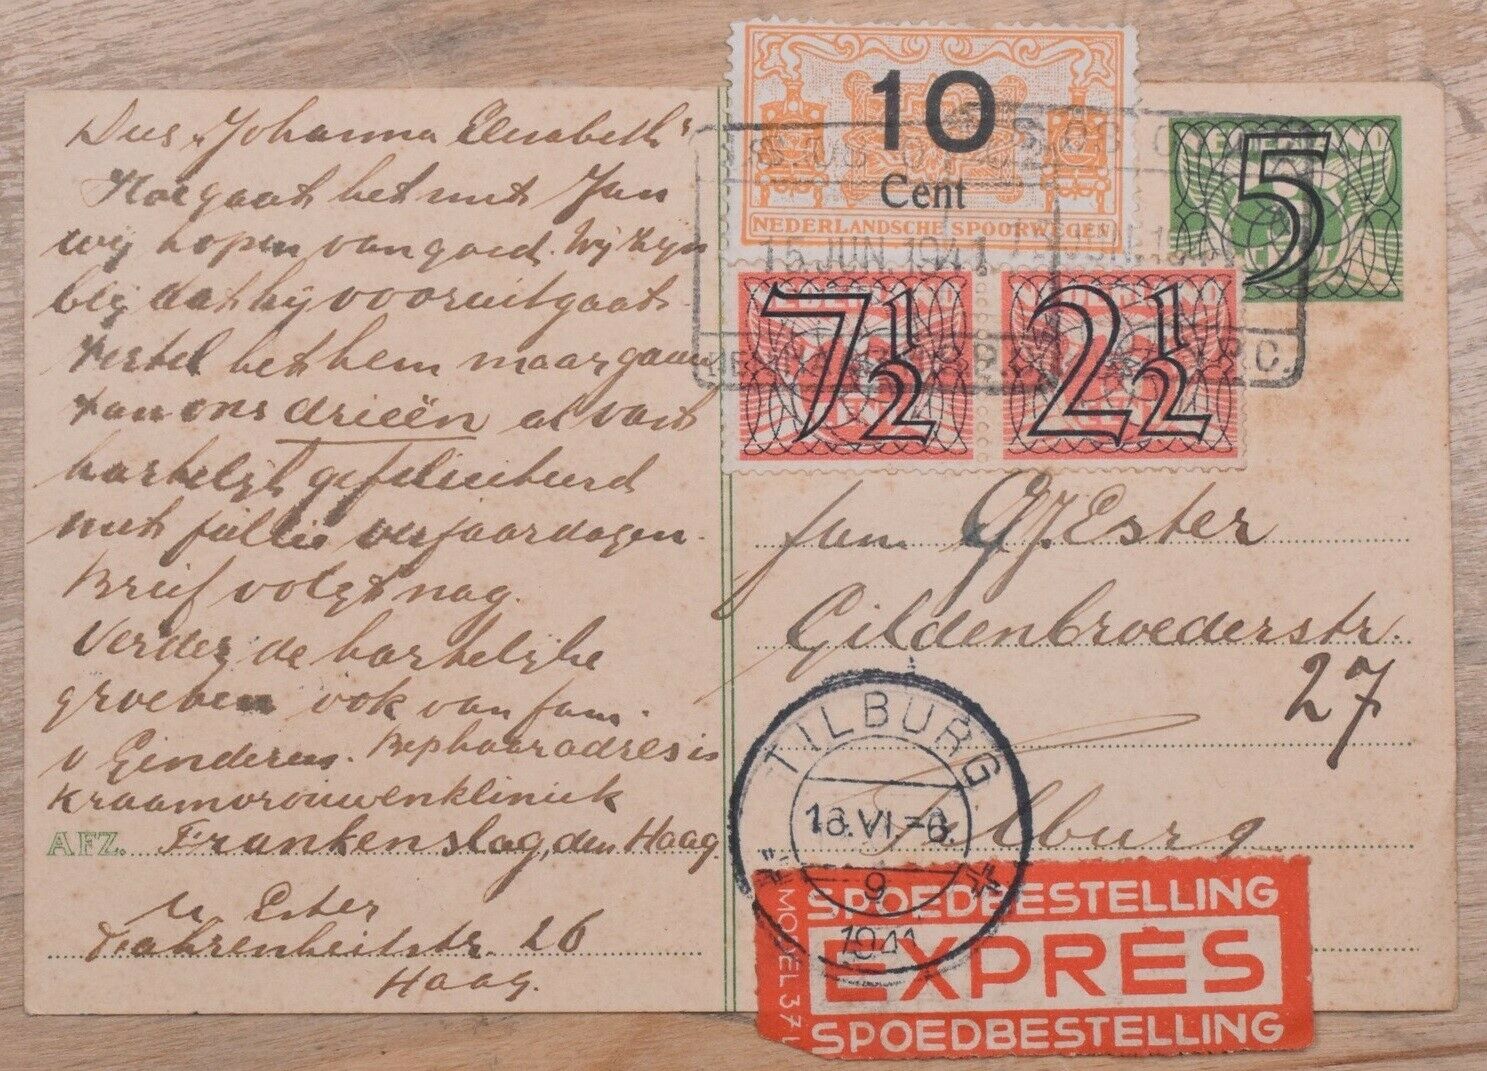 Dus "Johanna Elisabeth"
Hoe gaat het met Jan
wij hopen van goed. Wij zijn
blij dat hij vooruitgaat.
Vertel het hem maar gauw
Van ons drieën al vast
hartelijk gefeliciteerd
met jullie verjaardagen.
Brief volgt nog.
Verder de hartelijke
groeten ook van fam.
v Einderen. Rephaaradres is
Kraamvrouwenkliniek
AFZ. Frankenslag, den Haag
Ester
Fahrenheitstr. 26
Haag.
10
Cent
NEDERLANDSCHE SPOORWEGEN
15 JUN. 1941
NEDERLAND
5
7½
2½
fam. Ester
Gildenbroederstr.
27
Tilburg
TILBURG
16.VI.-8.
9
1941
MODEL 37
SPOEDBESTELLING
EXPRÈS
SPOEDBESTELLING